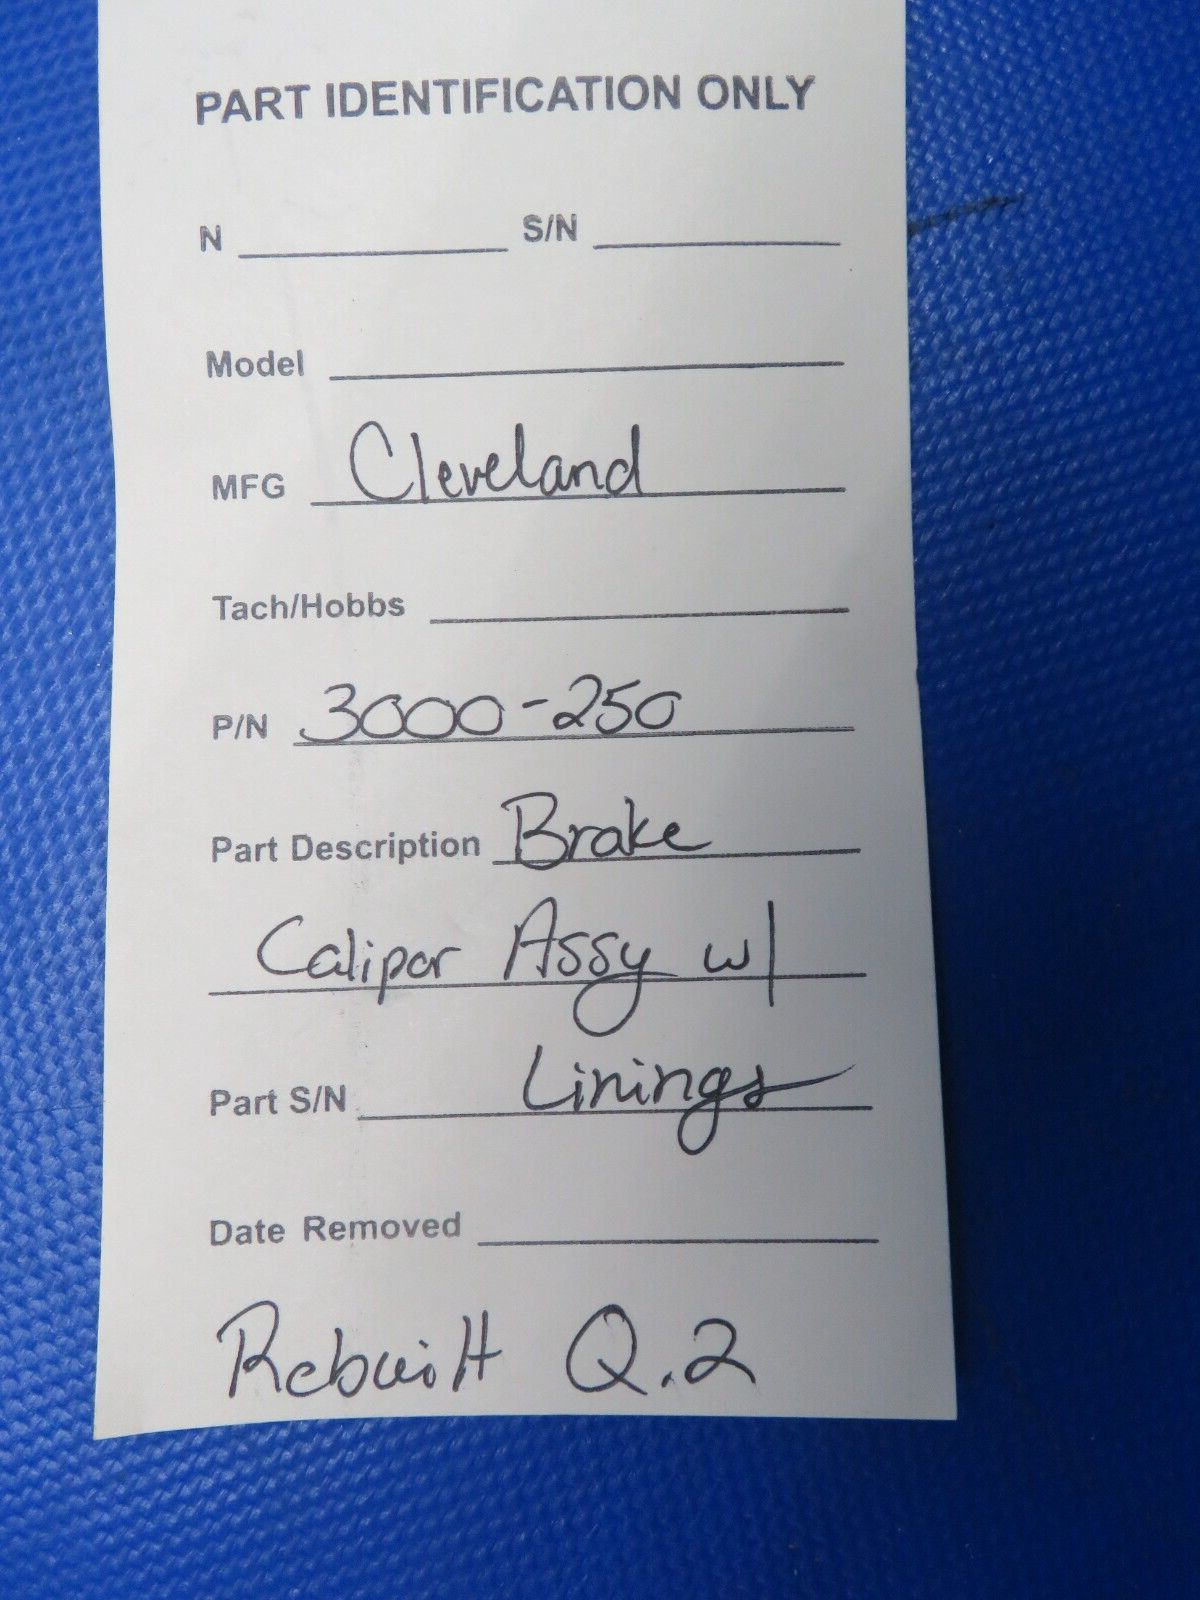 PART IDENTIFICATION ONLY
N S/N
Model
MFG Cleveland
Tach/Hobbs
P/N 3000-250
Part Description Brake
Calipor Assy w/
Part S/N Linings
Date Removed
Rebuilt Q.2